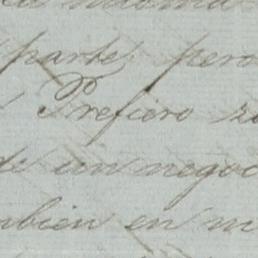 parte, pero
Prefiero
de un negoc
mbien en m